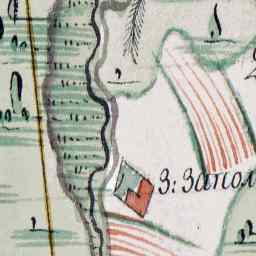 З: Запол